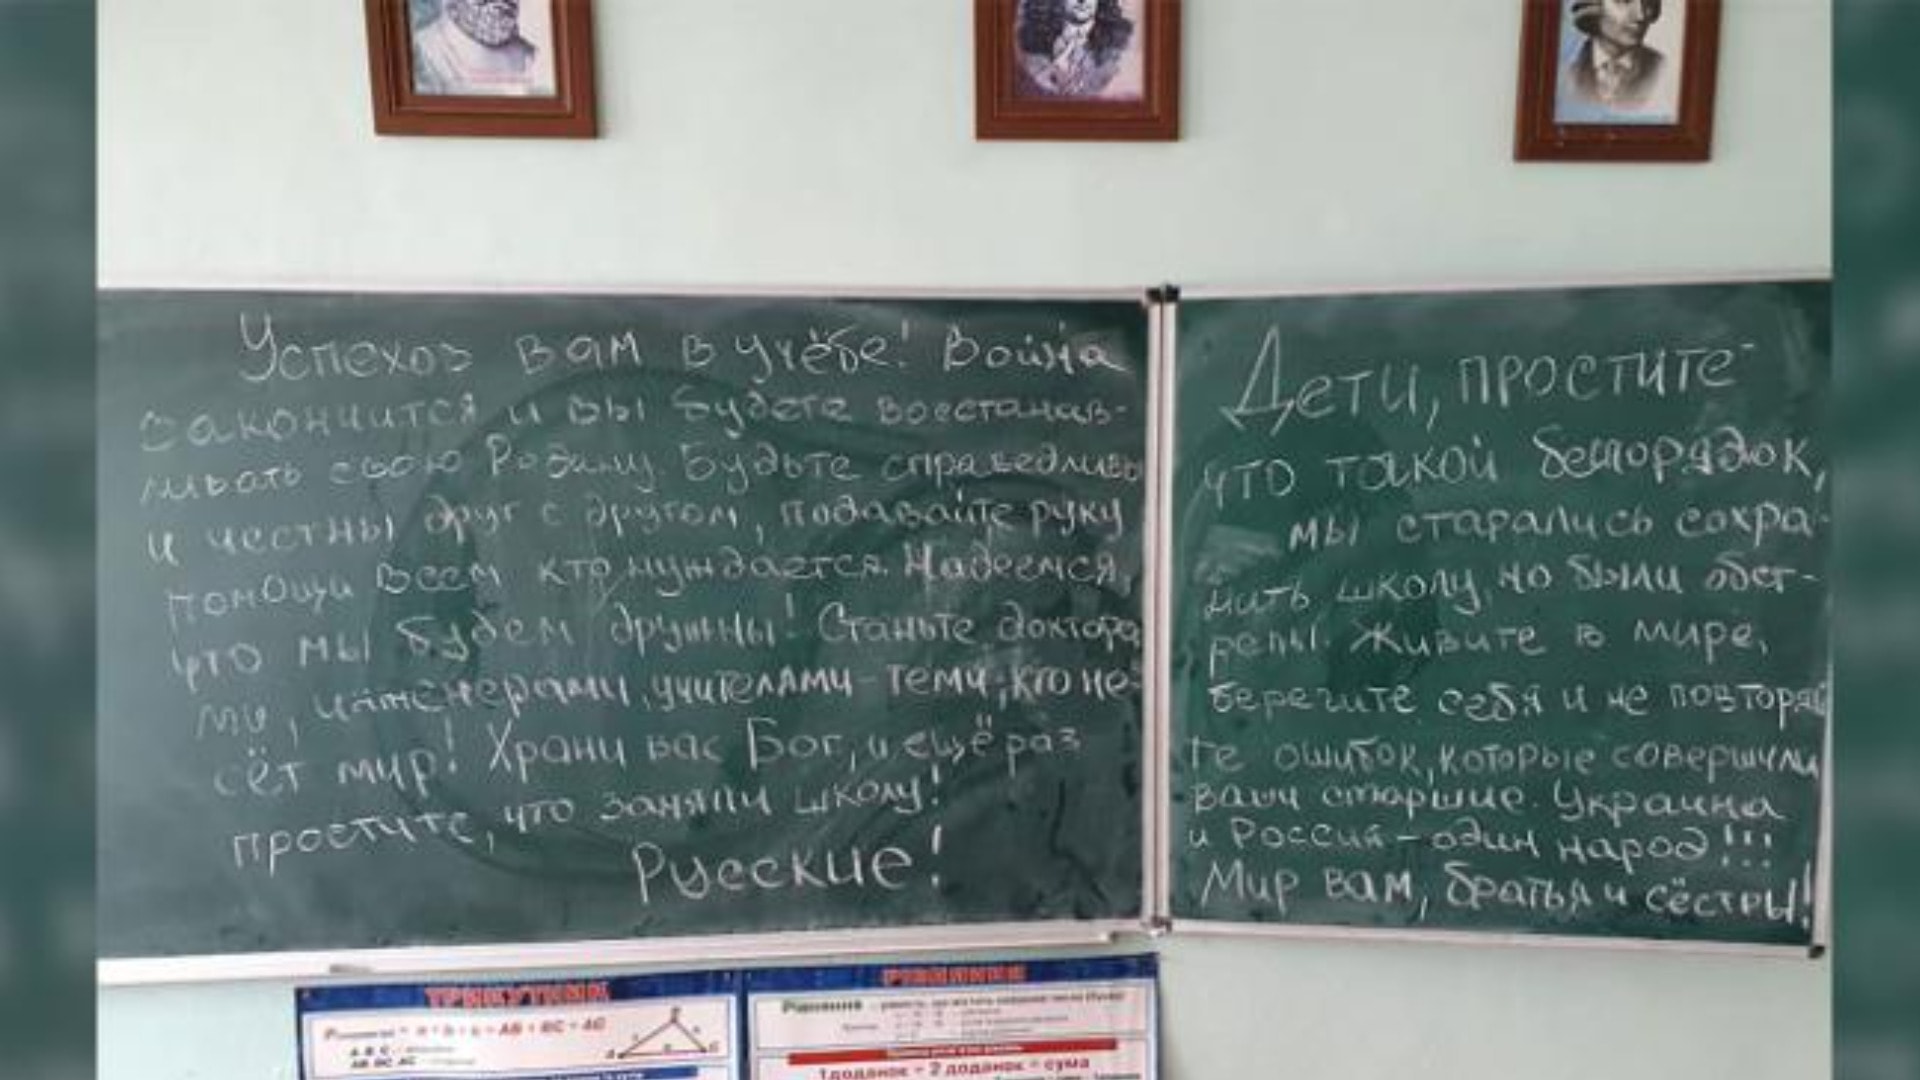 Успехов вам в учёбе! Война
закончится и вы будете восстанав-
ливать свою Родину. Будьте справедливы
и честны друг с другом, подавайте руку
помощи всем кто нуждается. Надеемся,
что мы будем дружны! Станьте доктора
ми, инженерами, учителями - теми, кто не-
сёт мир! Храни вас Бог, и ещё раз
простите, что заняли школу!
Русские!
Дети, простите
что такой беспорядок,
мы старались сохра-
нить школу, но были обст-
релы. Живите в мире,
берегите себя и не повторяй
те ошибок, которые совершили
ваши старшие. Украина
и Россия - один народ!!!
Мир вам, братья и сёстры!
ТРИКУТНИК
РІВНЯННЯ
Рівняння
1 доданок + 2 доданок = сума